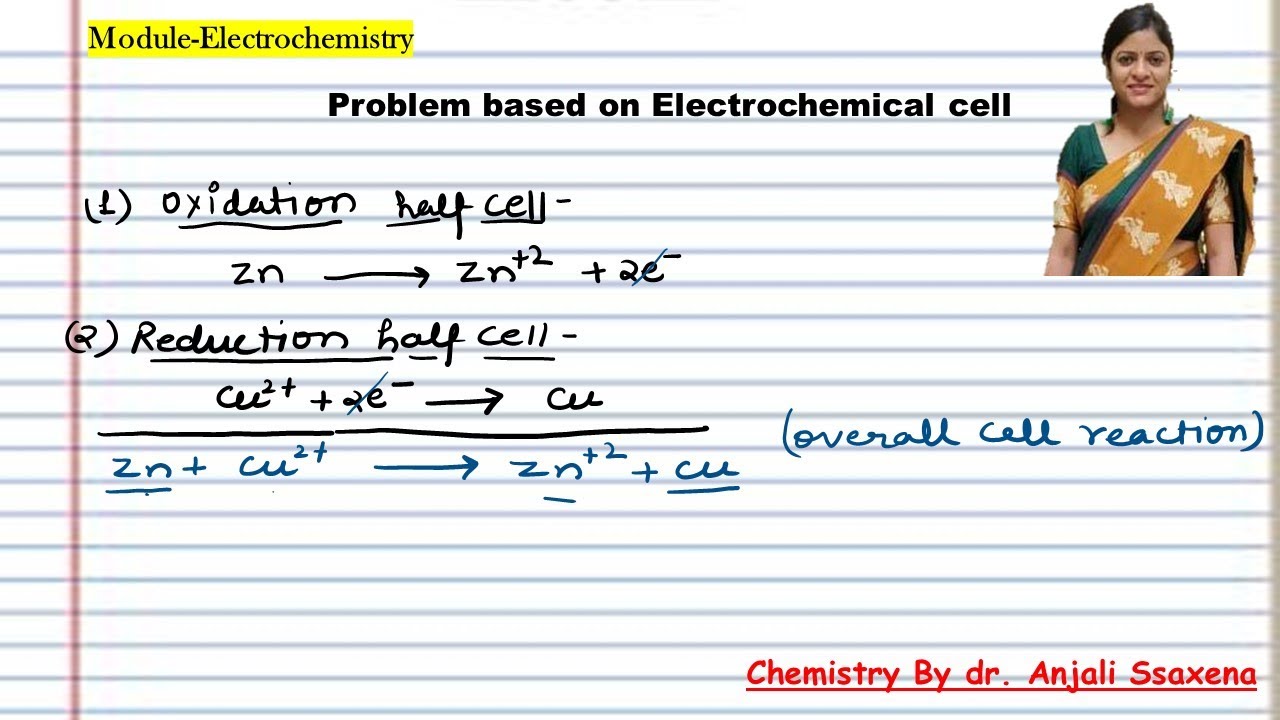 Module-Electrochemistry
Problem based on Electrochemical cell
(1) Oxidation half cell -
Zn ⟶ Zn⁺² + 2e⁻
(2) Reduction half cell -
Cu²⁺ + 2e⁻ ⟶ Cu
Zn + Cu²⁺ ⟶ Zn⁺² + Cu (overall cell reaction)
Chemistry By dr. Anjali Ssaxena